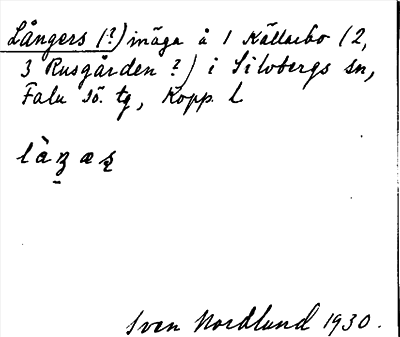 Långers (?) inäga å 1 Källarbo (2,
3 Rusgården ?) i Silvbergs sn,
Falu sö. tg, Kopp. L
Sven Nordlund 1930.